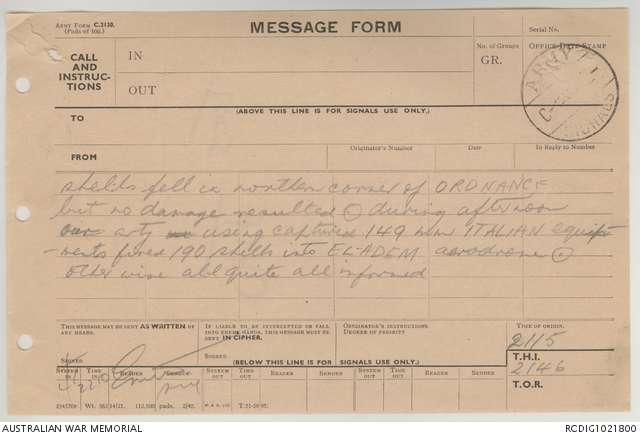 Army Form C.2130.
(Pads of 100.)
MESSAGE FORM
Serial No.
CALL
AND
INSTRUC-
TIONS
IN
OUT
No. of Groups
GR.
Office Date Stamp
ARMY
SIGNALS
(ABOVE THIS LINE IS FOR SIGNALS USE ONLY.)
TO
FROM
Originator's Number
Date
In Reply to Number
shells fell in northen corner of ORDNANCE
but no damage resulted (.) during afternoon
our arty using captured 149 mm ITALIAN equip
-ments fired 190 shells into EL ADEM aerodrome (.)
other wise all quite all informed
This message may be sent AS WRITTEN by
any means.
If liable to be intercepted or fall
into enemy hands, this message must be
sent IN CIPHER.
Originator's Instructions.
Degree of Priority
Time of Origin.
2115
Signed
Signed
(BELOW THIS LINE IS FOR SIGNALS USE ONLY.)
T.H.I.
2146
T.O.R.
System
In
Time
In
Reader
Sender
System
Out
Time
Out
Reader
Sender
System
Out
Time
Out
Reader
Sender
2210
AUSTRALIAN WAR MEMORIAL
RCDIG1021800